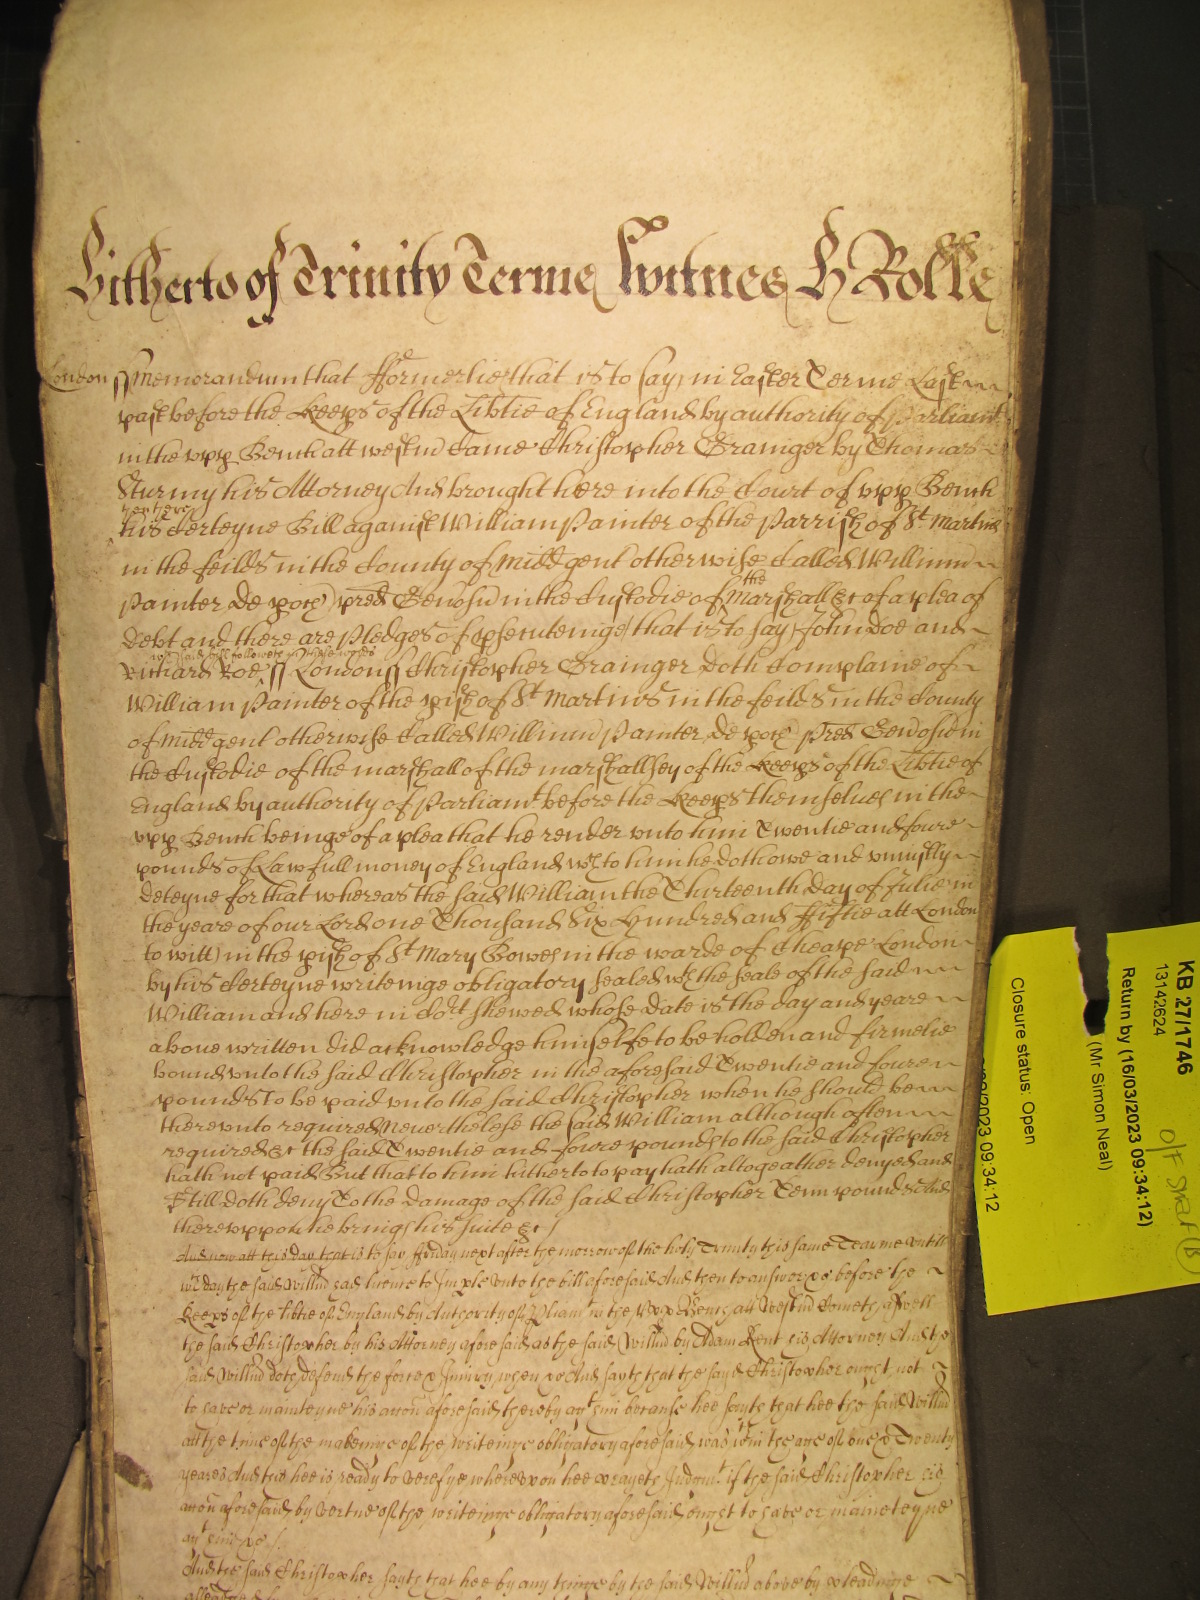 Hitherto of Trinity Terme Witnes H Rolle
London ss Memorandum that fformerlie that is to say in Easter Terme Last
past before the Keeps of the Libtie of England by authority of Parliamt
in the upp Bench att westm Came Christopher Grainger by Thomas
Sturmy his Attorney And brought here into the Court of upp Bench
then there
his Certeyne Bill against William Painter of the Parrish of St Martins
in the feilds in the County of Midd gent otherwise Called Willimu
the
Painter De poch pred Generosu in the Custodie of Marshall &c of a plea of
Debt and there are Pledges of psecuteinge that is to say John Doe and
wch said bill followeth in these words
Richard Roe ss London ss Christopher Grainger doth Complaine of
William Painter of the pish of St Martins in the feilds in the County
of Midd gent otherwise Called Willimu Painter De poch pred Generosu in
the Custodie of the marshall of the marshallsey of the Keeps of the Libtie of
England by authority of Parliamt before the Keeps themselues in the
upp Bench beinge of a plea that he render unto him Twentie and foure
pounds of Lawfull money of England wch to him he doth owe and uniustly
deteyne for that whereas the said William the Thirteenth day of Julie in
the yeare of our Lord one Thousand Six Hundred and ffiftie att London
to witt in the pish of St Mary Bowe in the warde of Cheape London
by his Certeyne writeinge obligatory sealed wth the seale of the said
William and here in Cort shewed whose date is the day and yeare
aboue written did acknowledge himselfe to be holden and firmelie
bound unto the said Christopher in the aforesaid Twentie and foure
pounds To be paid unto the said Christopher when he should be
thereunto required Neuerthelesse the said William although often
required &c the said Twentie and foure pounds to the said Christopher
hath not paid But that to him hitherto to pay hath altogeather denyed and
Still doth deny To the damage of the said Christopher Tenn pounds And
thereuppon he brings his suite &c
And now att this day that is to say ffryday next after the morrow of the holy Trinity this same Tearme untill
wch day the said Willm had licence to Imple unto the bill aforesaid And then to answer &c before the
Keeps of the libtie of England by Authority of Pliamt in the Upp Bench att Westm Cometh aswell
the said Christopher by his Attorney aforesaid as the said Willm by Adam Kent his Attorney And the
said Willm doth defend the force & Iniury when &c And sayth that the sayd Christopher ought not
to have or mainteyne his accon aforesaid thereby agt him because hee sayth that hee the said Willm
att the time of the makeinge of the writeinge obligatory aforesaid was wthin the age of one & Twenty
yeares And this hee is ready to verefye whereupon hee prayeth Judgmt if the said Christopher his
accon aforesaid by vertue of the writeinge obligatory aforesaid ought to have or mainteyne
agt him &c
And the said Christopher sayth that hee by any thinge by the said Willm above by pleadinge
alleadged
KB 27/1746
13142624
Return by (16/03/2023 09:34:12)
(Mr Simon Neal)
Closure status: Open
2023 09:34:12
O/F